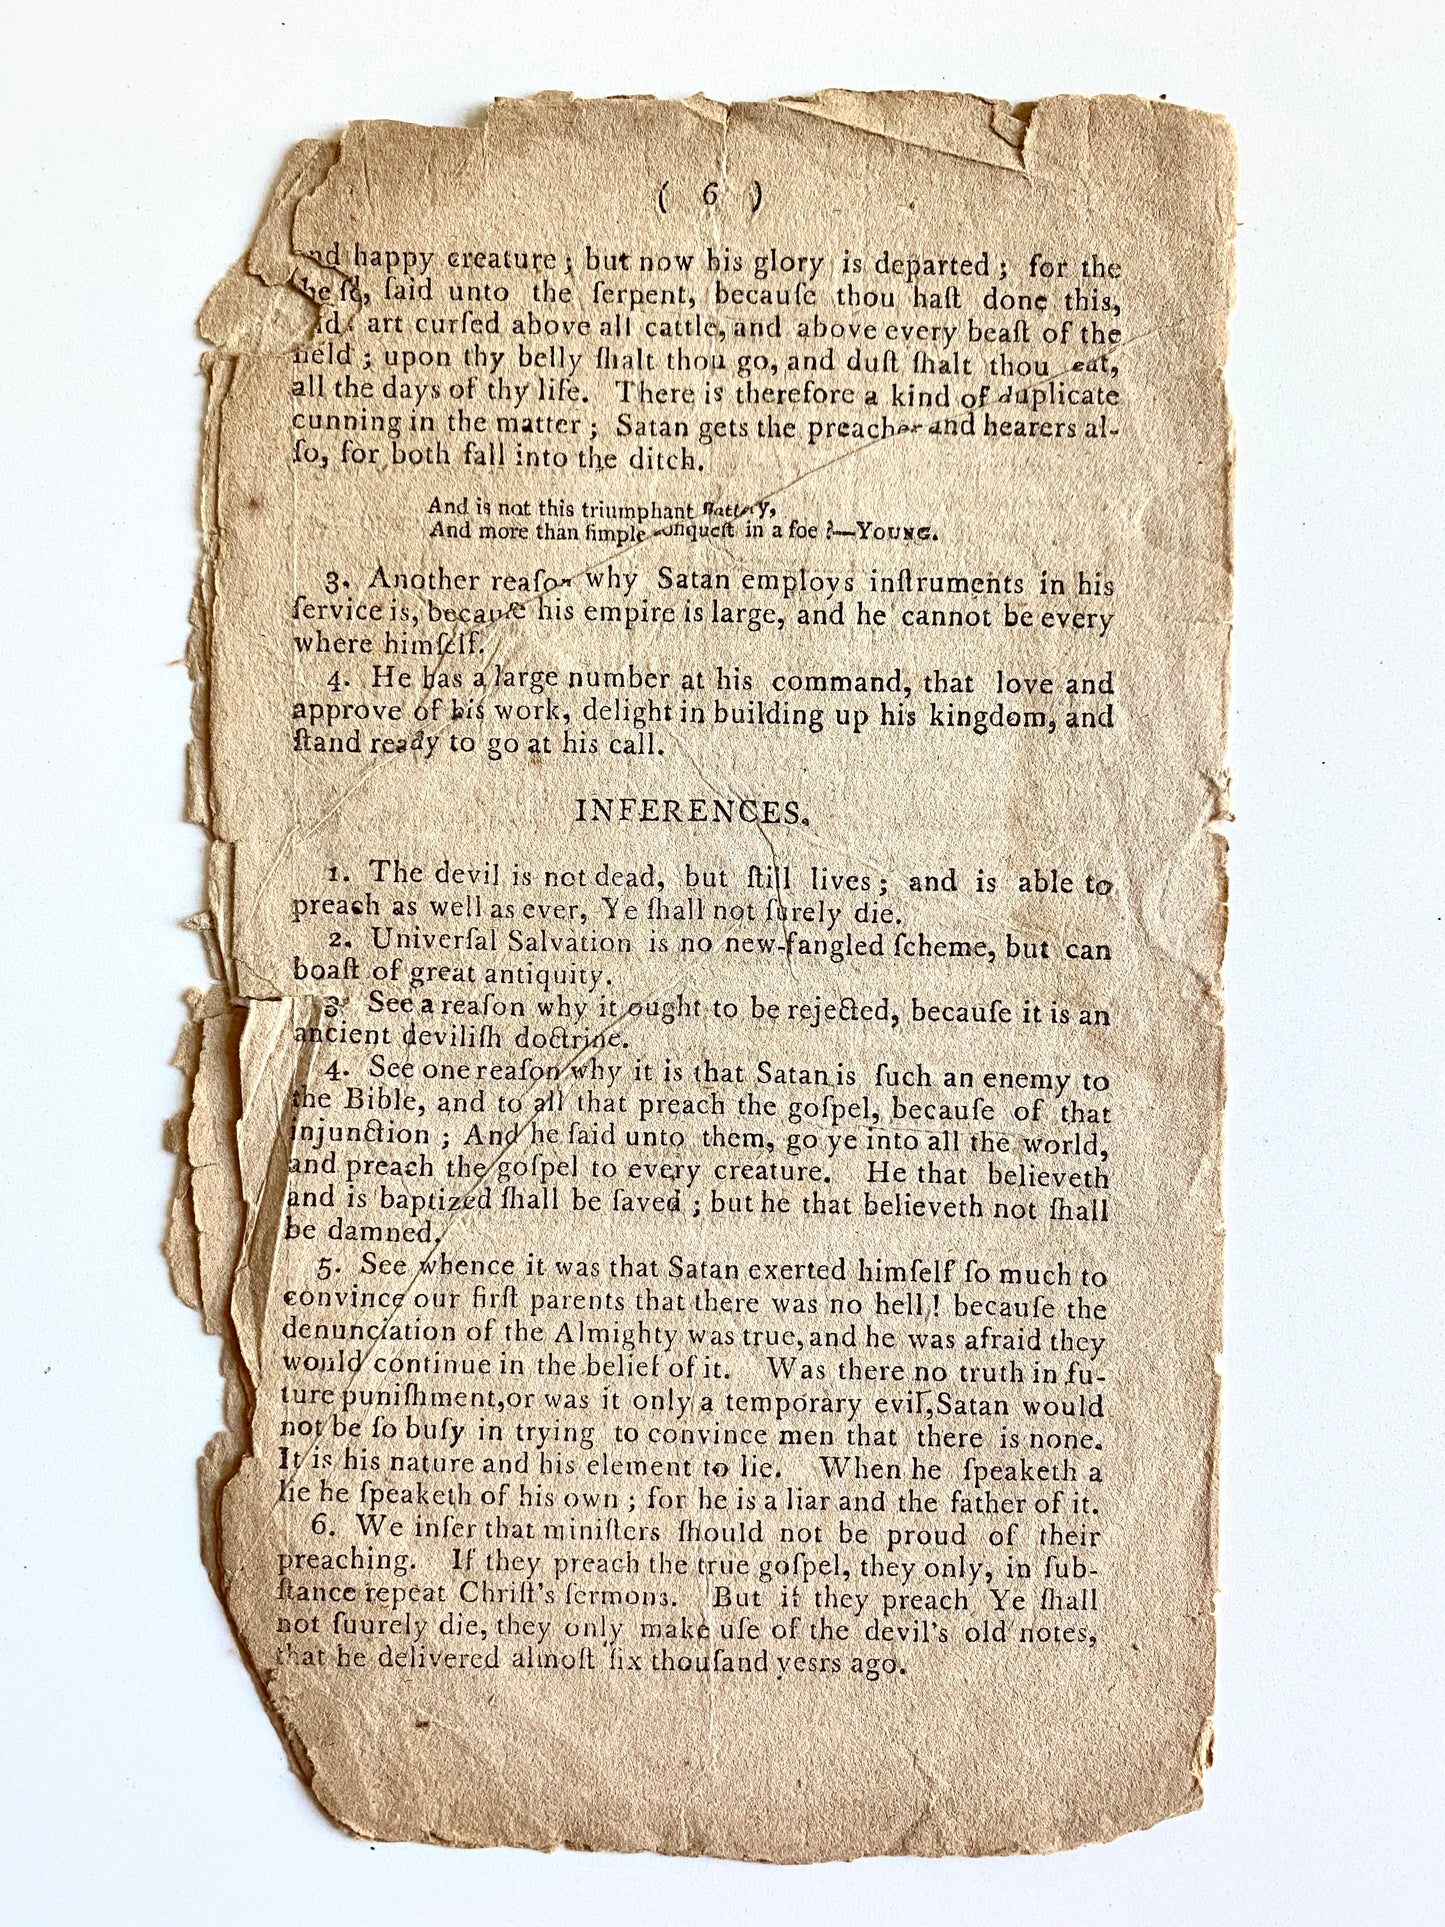 ( 6 )
and happy creature ; but now his glory is departed ; for the
ſaid unto the ſerpent, becauſe thou haſt done this,
art curſed above all cattle, and above every beaſt of the
field ; upon thy belly ſhalt thou go, and duſt ſhalt thou eat,
all the days of thy life. There is therefore a kind of duplicate
cunning in the matter ; Satan gets the preacher and hearers al-
ſo, for both fall into the ditch.
And is not this triumphant
And more than ſimple conqueſt in a foe ?—YOUNG.
3. Another reaſon why Satan employs inſtruments in his
ſervice is, becauſe his empire is large, and he cannot be every
where himſelf.
4. He has a large number at his command, that love and
approve of his work, delight in building up his kingdom, and
ſtand ready to go at his call.
INFERENCES.
1. The devil is not dead, but ſtill lives ; and is able to
preach as well as ever, Ye ſhall not ſurely die.
2. Univerſal Salvation is no new-fangled ſcheme, but can
boaſt of great antiquity.
3. See a reaſon why it ought to be rejected, becauſe it is an
ancient deviliſh doctrine.
4. See one reaſon why it is that Satan is ſuch an enemy to
the Bible, and to all that preach the goſpel, becauſe of that
injunction ; And he ſaid unto them, go ye into all the world,
and preach the goſpel to every creature. He that believeth
and is baptized ſhall be ſaved ; but he that believeth not ſhall
be damned.
5. See whence it was that Satan exerted himſelf ſo much to
convince our firſt parents that there was no hell ! becauſe the
denunciation of the Almighty was true, and he was afraid they
would continue in the belief of it. Was there no truth in fu-
ture puniſhment, or was it only a temporary evil, Satan would
not be ſo buſy in trying to convince men that there is none.
It is his nature and his element to lie. When he ſpeaketh a
lie he ſpeaketh of his own ; for he is a liar and the father of it.
6. We infer that miniſters ſhould not be proud of their
preaching. If they preach the true goſpel, they only, in ſub-
ſtance repeat Chriſt's ſermons. But if they preach Ye ſhall
not ſuurely die, they only make uſe of the devil's old notes,
that he delivered almoſt ſix thouſand yesrs ago.